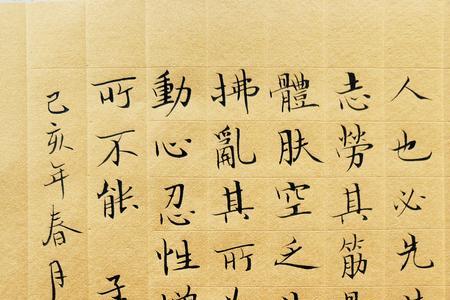 人也必先
志勞其筋
體膚空乏
拂亂其所
動心忍性
所不能
己亥年春月